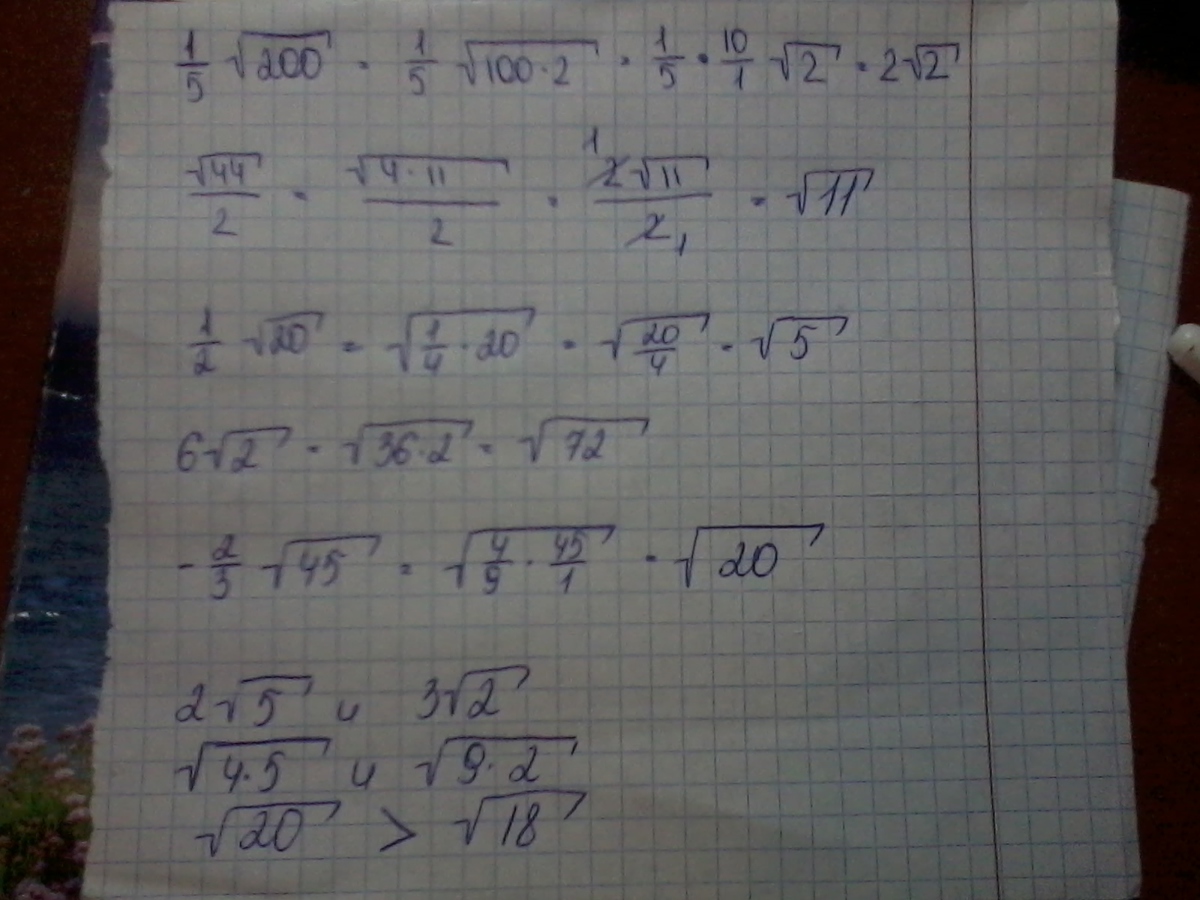 1/5 √200 = 1/5 √100·2 = 1/5 · 10/1 √2 = 2√2
√44/2 = √4·11/2 = 1 2√11/2 1 = √11
1/2 √20 = √1/4·20 = √20/4 = √5
6√2 = √36·2 = √72
-2/3 √45 = √4/9·45/1 = √20
2√5 и 3√2
√4·5 и √9·2
√20 > √18